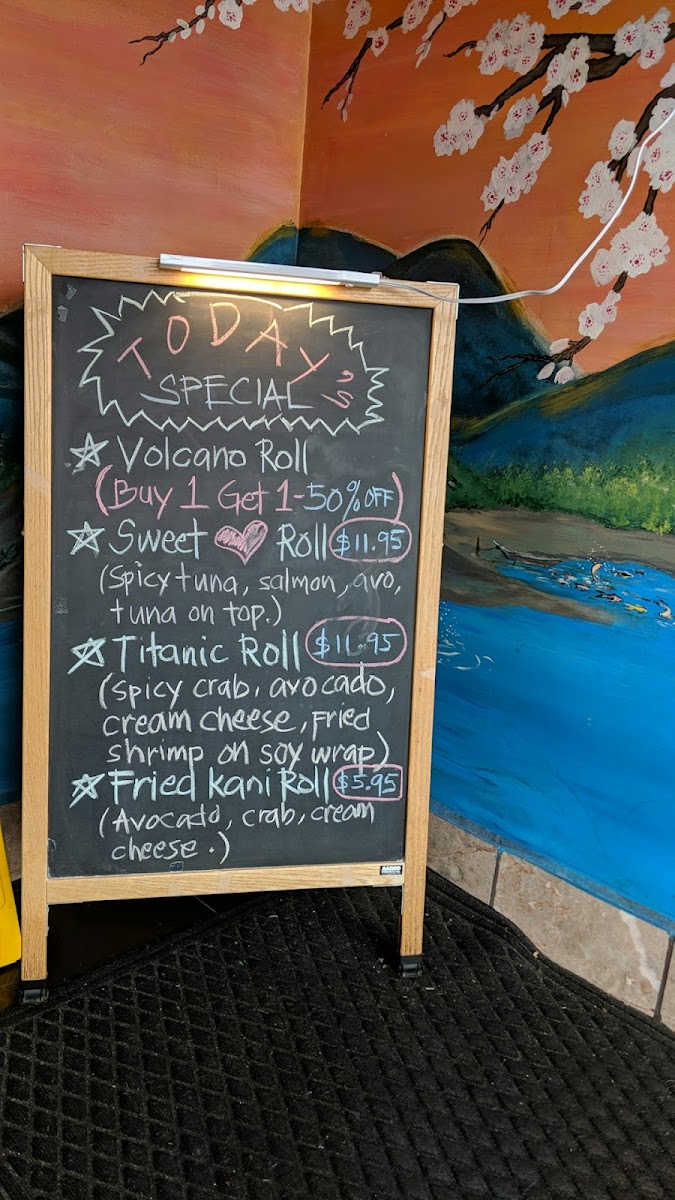 TODAY'S
SPECIAL
Volcano Roll
(Buy 1 Get 1-50% OFF)
Sweet Roll $11.95
(Spicy tuna, salmon, avo,
tuna on top.)
Titanic Roll $11.95
(spicy crab, avocado,
cream cheese, fried
shrimp on soy wrap)
Fried Kani Roll $5.95
(Avocado, crab, cream
cheese.)
AARCO